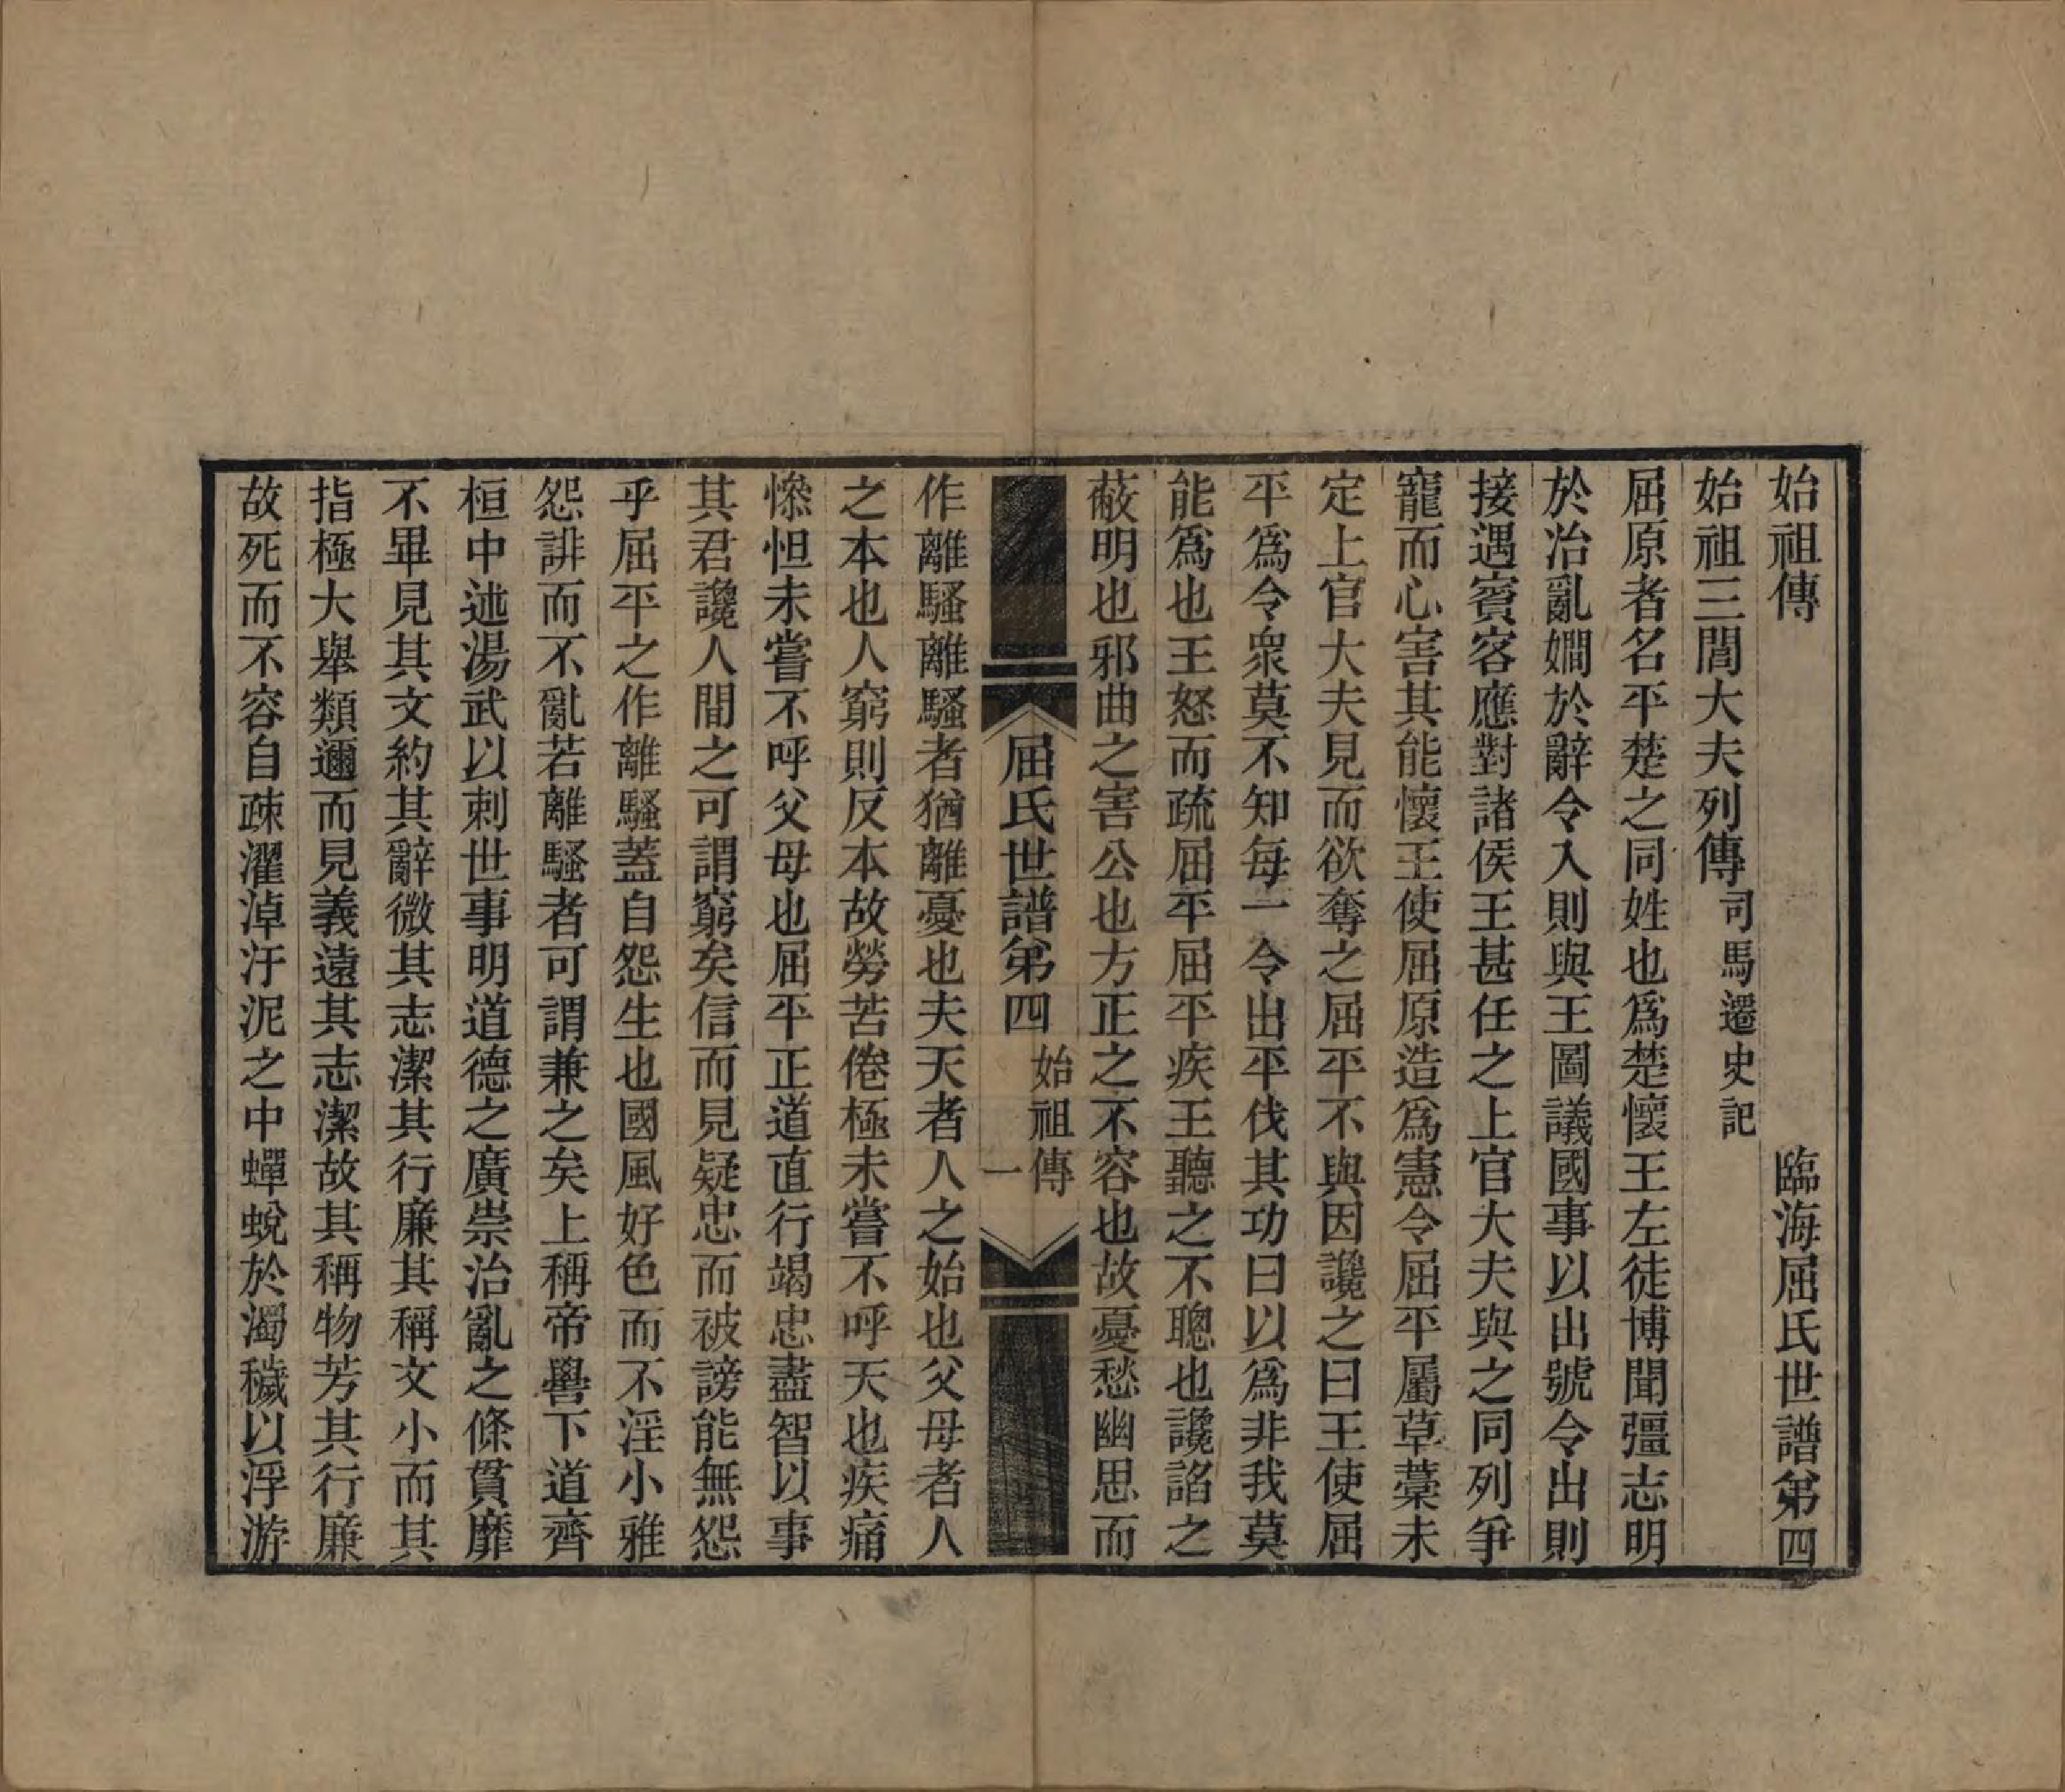 始祖傳　臨海屈氏世譜第四
始祖三閭大夫列傳司馬遷史記
屈原者名平楚之同姓也爲楚懷王左徒博聞彊志明
於治亂嫺於辭令入則與王圖議國事以出號令出則
接遇賓客應對諸侯王甚任之上官大夫與之同列爭
寵而心害其能懷王使屈原造爲憲令屈平屬草藁未
定上官大夫見而欲奪之屈平不與因讒之曰王使屈
平爲令衆莫不知每一令出平伐其功曰以爲非我莫
能爲也王怒而疏屈平屈平疾王聽之不聰也讒諂之
蔽明也邪曲之害公也方正之不容也故憂愁幽思而
屈氏世譜第四　始祖傳　一
作離騷離騷者猶離憂也夫天者人之始也父母者人
之本也人窮則反本故勞苦倦極未嘗不呼天也疾痛
慘怛未嘗不呼父母也屈平正道直行竭忠盡智以事
其君讒人間之可謂窮矣信而見疑忠而被謗能無怨
乎屈平之作離騷蓋自怨生也國風好色而不淫小雅
怨誹而不亂若離騷者可謂兼之矣上稱帝嚳下道齊
桓中述湯武以刺世事明道德之廣崇治亂之條貫靡
不畢見其文約其辭微其志潔其行廉其稱文小而其
指極大舉類邇而見義遠其志潔故其稱物芳其行廉
故死而不容自疎濯淖汙泥之中蟬蛻於濁穢以浮游